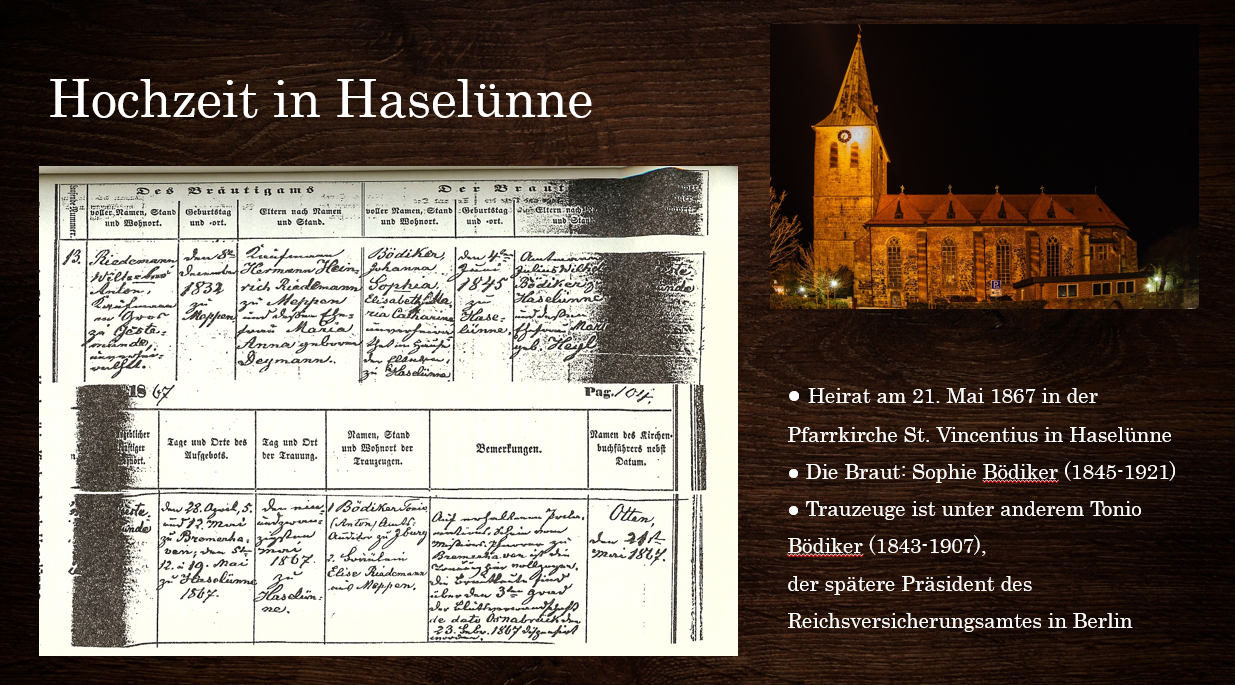 Hochzeit in Haselünne
Des Bräutigams
Der Braut
voller Namen, Stand
und Wohnort.
Geburtstag
und -ort.
Eltern nach Namen
und Stand.
voller Namen, Stand
und Wohnort.
Geburtstag
und -ort.
Eltern nach
und
13.
Riedemann
Wilhelm
Anton,
Kaufmann
zu Geeste-
münde,
den 8ten
1832
zu
Meppen
Kaufmann
Hermann Hein-
rich Riedemann
zu Meppen
und dessen Ehe-
frau Maria
Anna geborene
Deymann.
Bödiker,
Johanna
Sophia,
Elisabeth, Ma-
ria Catharina
zu Haselünne
den 4ten
Juni
1845
zu
Hase-
lünne.
Amtmann
Julius Wilh
Bödiker
Haselünne
und dessen
Ehefrau Mar
geb. Heyl
1867
Pag. 104.
Tage und Orte des
Aufgebots.
Tag und Ort
der Trauung.
Namen, Stand
und Wohnort der
Trauzeugen.
Bemerkungen.
Namen des Kirchen-
buchführers nebst
Datum.
den 28. April, 5.
und 12. Mai
zu Bremerha-
ven, den 5ten
12. u 19. Mai
zu Haselünne
1867.
den ein
undzwan-
zigsten
Mai
1867
zu
Haselün-
ne.
1 Bödiker Tonio
(Anton) Amts-
Auditor zu Iburg
2. Fräulein
Elise Riedemann
aus Meppen.
Bremerhaven ist die
Trauung hier vollzogen.
die Brautleute sind
über den 3ten Grad
der Blutsverwandtschaft
de dato Osnabrück den
23. Febr. 1867 dispensirt
worden.
Otten,
den 21st
Mai 1867.
● Heirat am 21. Mai 1867 in der
Pfarrkirche St. Vincentius in Haselünne
● Die Braut: Sophie Bödiker (1845-1921)
● Trauzeuge ist unter anderem Tonio
Bödiker (1843-1907),
der spätere Präsident des
Reichsversicherungsamtes in Berlin